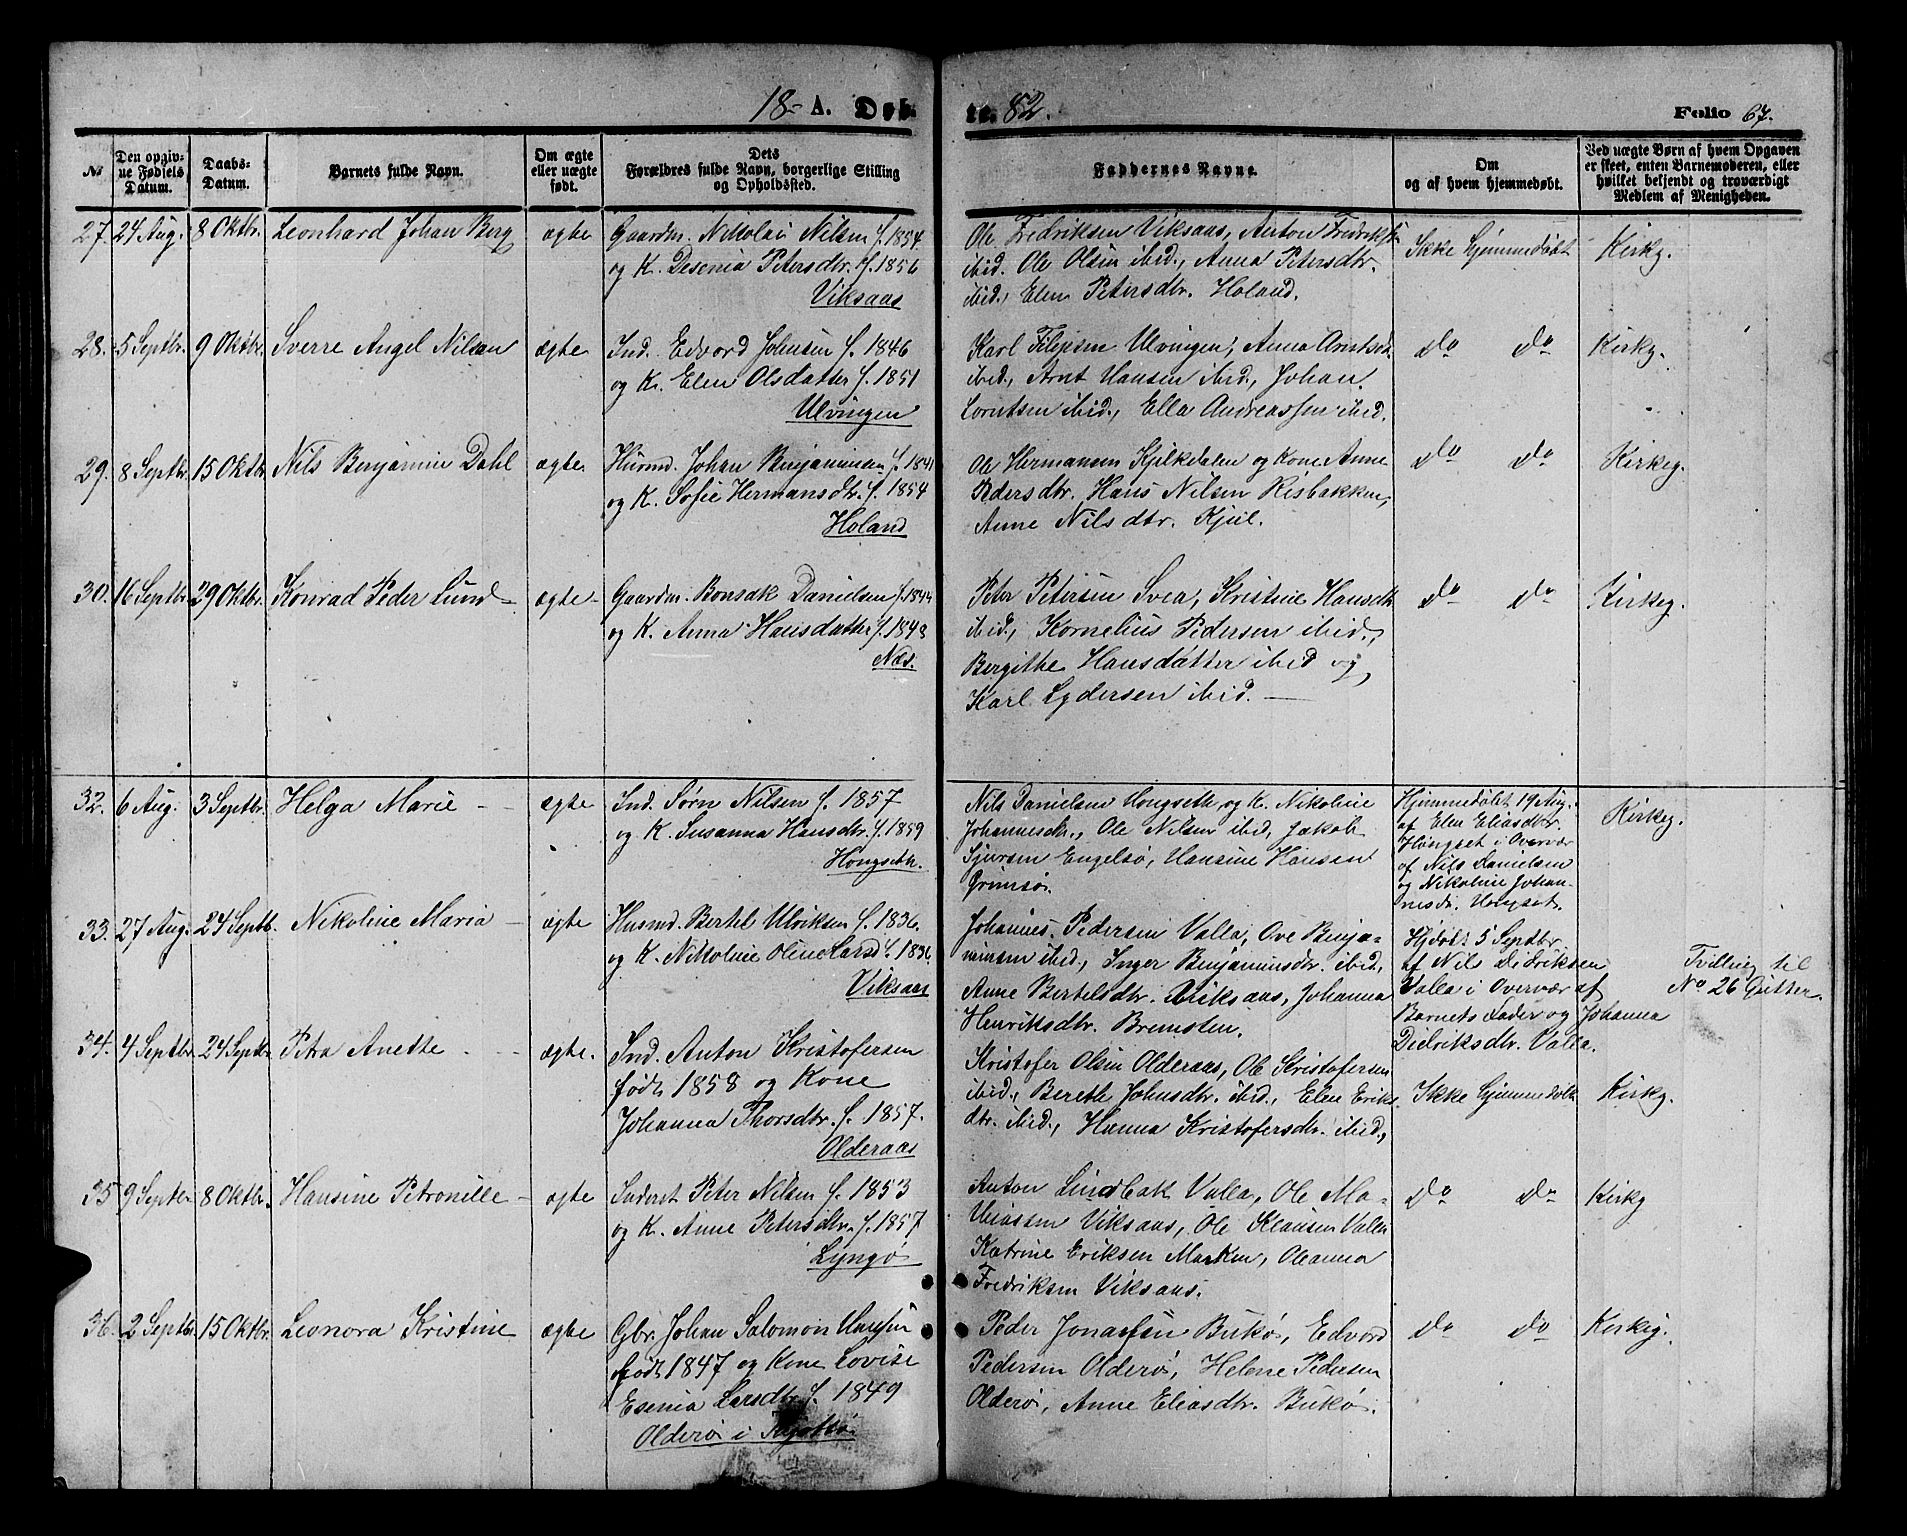 18- A. Døb-
te. 82.
Folio 67.
No
Den opgiv-
ne Fødsels
Datum.
Daabs-
Datum.
Barnets fulde Navn.
Om ægte
eller uægte
født.
Dets
Forældres fulde Navn, borgerlige Stilling
og Opholdssted.
Faddernes Navne.
Om
og af hvem hjemmedøbt.
Ved uægte Børn af hvem Opgaven
er skeet, enten Barnemoderen, eller
hvilket bekjendt og troværdigt
Medlem af Menigheden.
27. 24 Aug. 8 Oktbr. Leonhard Johan Berg ægte
Gaardm. Nikolai Nilsen f. 1854
og K. Desenia Petersdtr. f. 1856
Viksaas
Ole Fredriksen Viksaas, Anton Fredriksen
ibid. Ole Olsen ibid., Anna Petersdtr.
ibid., Elen Petersdtr. Holand.
Ikke hjemmedøbt
Kirkg.
28. 5 Septbr. 9 Oktbr. Sverre Angel Nilsen ægte
Ind. Edvard Johnsen f. 1846
og K. Elen Olsdatter f. 1851
Ulvingen
Karl Filipsen Ulvingen, Anna Arntsd.
ibid., Arnt Hansen ibid., Johan
Lorntsen ibid., Ella Andreassen ibid.
do do
Kirkg.
29. 8 Septbr. 15 Oktbr. Nils Benjamin Dahl ægte.
Husmd. Johan Benjaminsen f. 1841
og K. Sofie Hermansdtr. f. 1854
Holand
Ole Hermansen Kjilkedalen og Kone Anne
Pedersdtr. Hans Nilsen Risbakken,
Anne Nilsdtr. Kjul.
do do
Kirkeg.
30. 16 Septbr. 29 Oktbr. Konrad Peder Lund ægte
Gaardm. Bonsak Danielsen f. 1844
og K. Anna Hansdatter f. 1848
Næs.
Peter Petersen Svea, Kristine Hansdtr.
ibid., Kornelius Pedersen ibid.,
Bergithe Hansdatter ibid og
Karl Lydersen ibid.
do do
Kirkeg.
32. 6 Aug. 3 Septbr. Helga Marie ægte
Ind. Sørn Nilsen f. 1857
og K. Susanna Hansdtr. f. 1859
Hongseth.
Nils Danielsen Hongseth og K. Nikoline
Johannesdtr., Ole Nilsen ibid, Jakob
Sjursen Engelsø, Hansine Hansen
Grimsø.
Hjemmedøbt 19 Aug.
af Elen Eliasdtr.
Hongset i Overvær
af Nils Danielsen
og Nikoline Johan-
nesdr. Hongset.
Kirkg.
33. 27 Aug. 24 Septb. Nikoline Maria ægte
Husmd. Bertel Ulriksen f. 1836
og K. Nikoline Oline Larsd. f. 1836
Viksaas
Johannes Pedersen Valla, Ove Benja-
minsen ibid., Inger Benjaminsdtr. ibid,
Anne Bertelsdtr. Viksaas, Johanna
Henriksdtr. Bremsten.
Hjdøbt 5 Septbr
af Nils Didriksen
Valla i Overvær af
Barnets Fader og Johanna
Didriksdtr. Valla.
Tvilling til
No 26 Gutter.
34. 4 Septbr. 24 Septbr. Petra Anette ægte.
Ind. Anton Kristofersen
født 1858 og Kone
Johanna Thorsdtr. f. 1857.
Olderaas
Kristofer Olsen Olderaas, Ole Kristofersen
ibid., Bereth Johnsdtr. ibid., Elen Eriks-
dtr. ibid., Hanna Kristofersdtr. ibid,
Ikke hjemmedøbt
Kirkg.
35 9 Septbr 8 Oktbr. Hansine Petronille ægte
Inderst Peter Nilsen f. 1853
og K. Anne Petersdtr. f. 1857
Lyngø
Anton Lindbak Valla, Ole Ma-
thiassen Viksaas, Ole Klausen Valla
Katrine Eriksen Marken, Oleanna
Fredriksen Viksaas.
do do
Kirkg
36. 2 Septbr. 15 Oktbr. Leonora Kristine ægte
Gbr. Johan Salomon Hansen
født 1847 og Kone Lovise
Esenia Larsdtr. f. 1849
Olderø i
Peder Jonassen Bukø, Edvard
Pedersen Olderø, Helene Pedersen
Olderø, Anne Eliasdtr. Bukø.
do do
Kirkg.